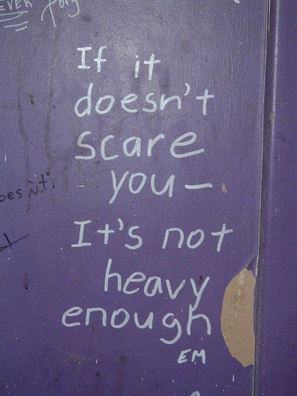 EVER
If it
doesn't
scare
you—
It's not
heavy
enough
EM